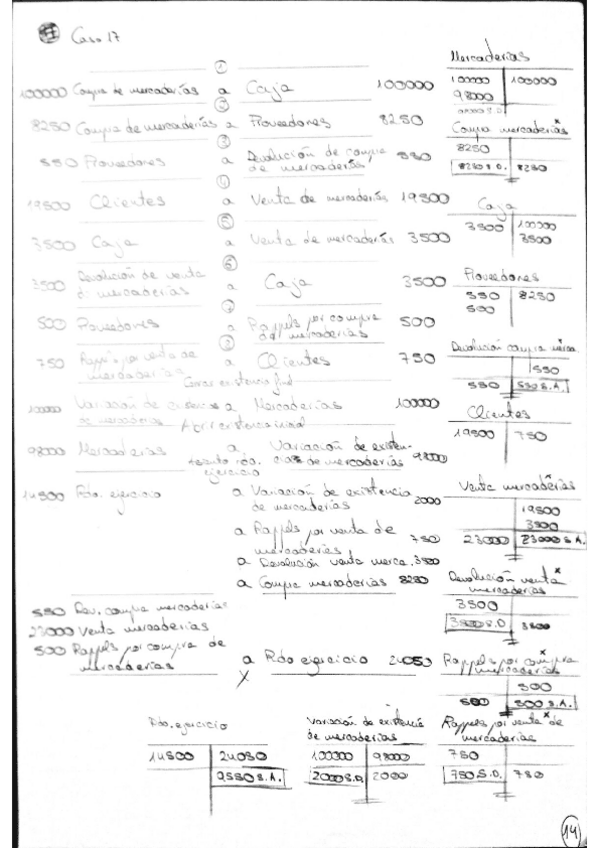 Caso 17
①
100000 Compra de mercaderías a Caja 100000
②
8250 Compra de mercaderías a Proveedores 8250
③
550 Proveedores a Devolución de compra de mercaderías 550
④
19500 Clientes a Venta de mercaderías 19500
⑤
3500 Caja a Venta de mercaderías 3500
⑥
3500 Devolución de venta
de mercaderías a Caja 3500
⑦
500 Proveedores a Rappels por compra
de mercaderías 500
⑧
750 Rappels por venta de
mercaderías a Clientes 750
Cerrar existencia final
100000 Variación de existencias a Mercaderías 100000
de mercaderías
Abrir existencia inicial
98000 Mercaderías a Variación de existen-
cias de mercaderías 98000
asiento rdo.
ejercicio
14500 Rdo. ejercicio a Variación de existencia
de mercaderías 2000
a Rappels por venta de
mercaderías 750
a Devolución venta merca. 3500
a Compra mercaderías 8250
550 Dev. compra mercaderías
23000 Venta mercaderías
500 Rappels por compra de
mercaderías a Rdo ejercicio 24050
Mercaderías
100000 100000
98000
Compra mercaderías
8250
8250 S.D. 8250
Caja
3500 100000
3500
Proveedores
550 8250
500
Devolución compra merca
550
550 550 S.A.
Clientes
19500 750
Venta mercaderías
19500
3500
23000 23000 S.A.
Devolución venta
mercaderías
3500
3500 S.D 3500
Rappels por compra
mercaderías
500
500 500 S.A.
Rdo. ejercicio
14500 24050
9550 S.A.
Variación de existencia
de mercaderías
100000 98000
2000 S.D. 2000
Rappels por venta de
mercaderías
750
750 S.D. 750
14